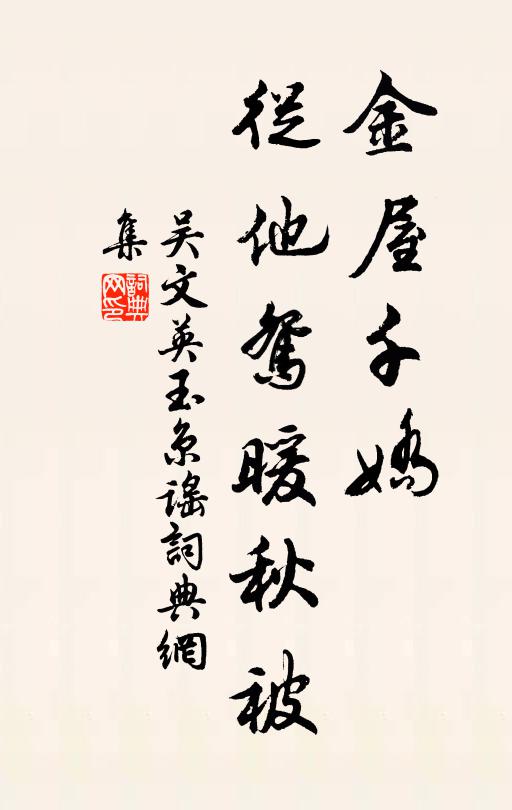 金屋千嬌
從他鴛暖秋被
吳文英玉京謠詞典網
集
詞典
网印